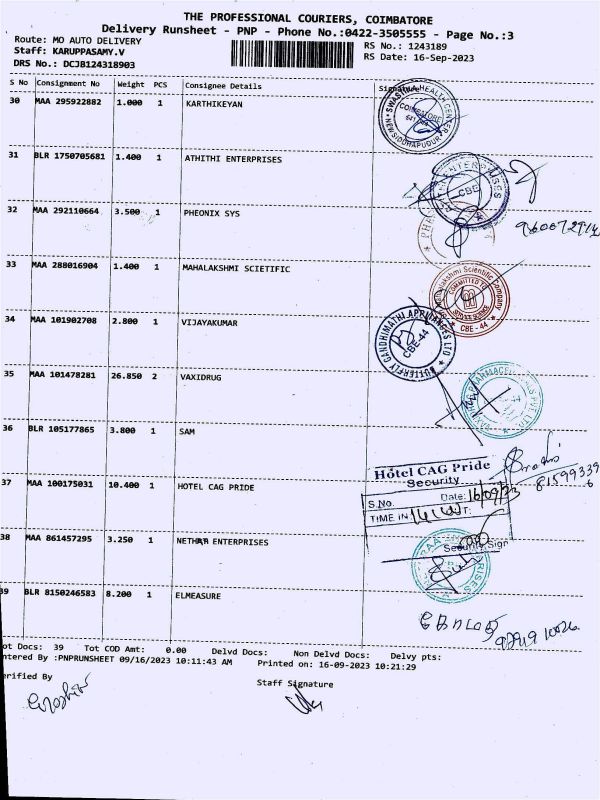 THE PROFESSIONAL COURIERS, COIMBATORE
Delivery Runsheet - PNP - Phone No.:0422-3505555 - Page No.:3
Route: MO AUTO DELIVERY
RS No.: 1243189
Staff: KARUPPASAMY.V
RS Date: 16-Sep-2023
DRS No.: DCJB124318903
S No Consignment No Weight PCS Consignee Details
30 MAA 295922882 1.000 1 KARTHIKEYAN
SWASTHA HEALTH CENTER
COIMBATORE
NEW SIDDHAPUDUR
31 BLR 1750705681 1.400 1 ATHITHI ENTERPRISES
ENTERPRISES
CBE
32 MAA 292110664 3.500 1 PHEONIX SYS
33 MAA 288016904 1.400 1 MAHALAKSHMI SCIETIFIC
Mahalakshmi Scientific Company
COMMITTED TO
CBE - 44
34 MAA 101902708 2.800 1 VIJAYAKUMAR
BUTTERFLY GANDHIMATHI APPLIANCES LTD
CBE-44
35 MAA 101478281 26.850 2 VAXIDRUG
36 BLR 105177865 3.800 1 SAM
37 MAA 100175031 10.400 1 HOTEL CAG PRIDE
Hotel CAG Pride
Security
S.No. Date: 16/09/23
TIME IN
Security Sign
38 MAA 861457295 3.250 1 NETHRR ENTERPRISES
39 BLR 8150246583 8.200 1 ELMEASURE
ot Docs: 39 Tot COD Amt: 0.00 Delvd Docs: Non Delvd Docs: Delvy pts:
ntered By :PNPRUNSHEET 09/16/2023 10:11:43 AM Printed on: 16-09-2023 10:21:29
erified By
Staff Signature